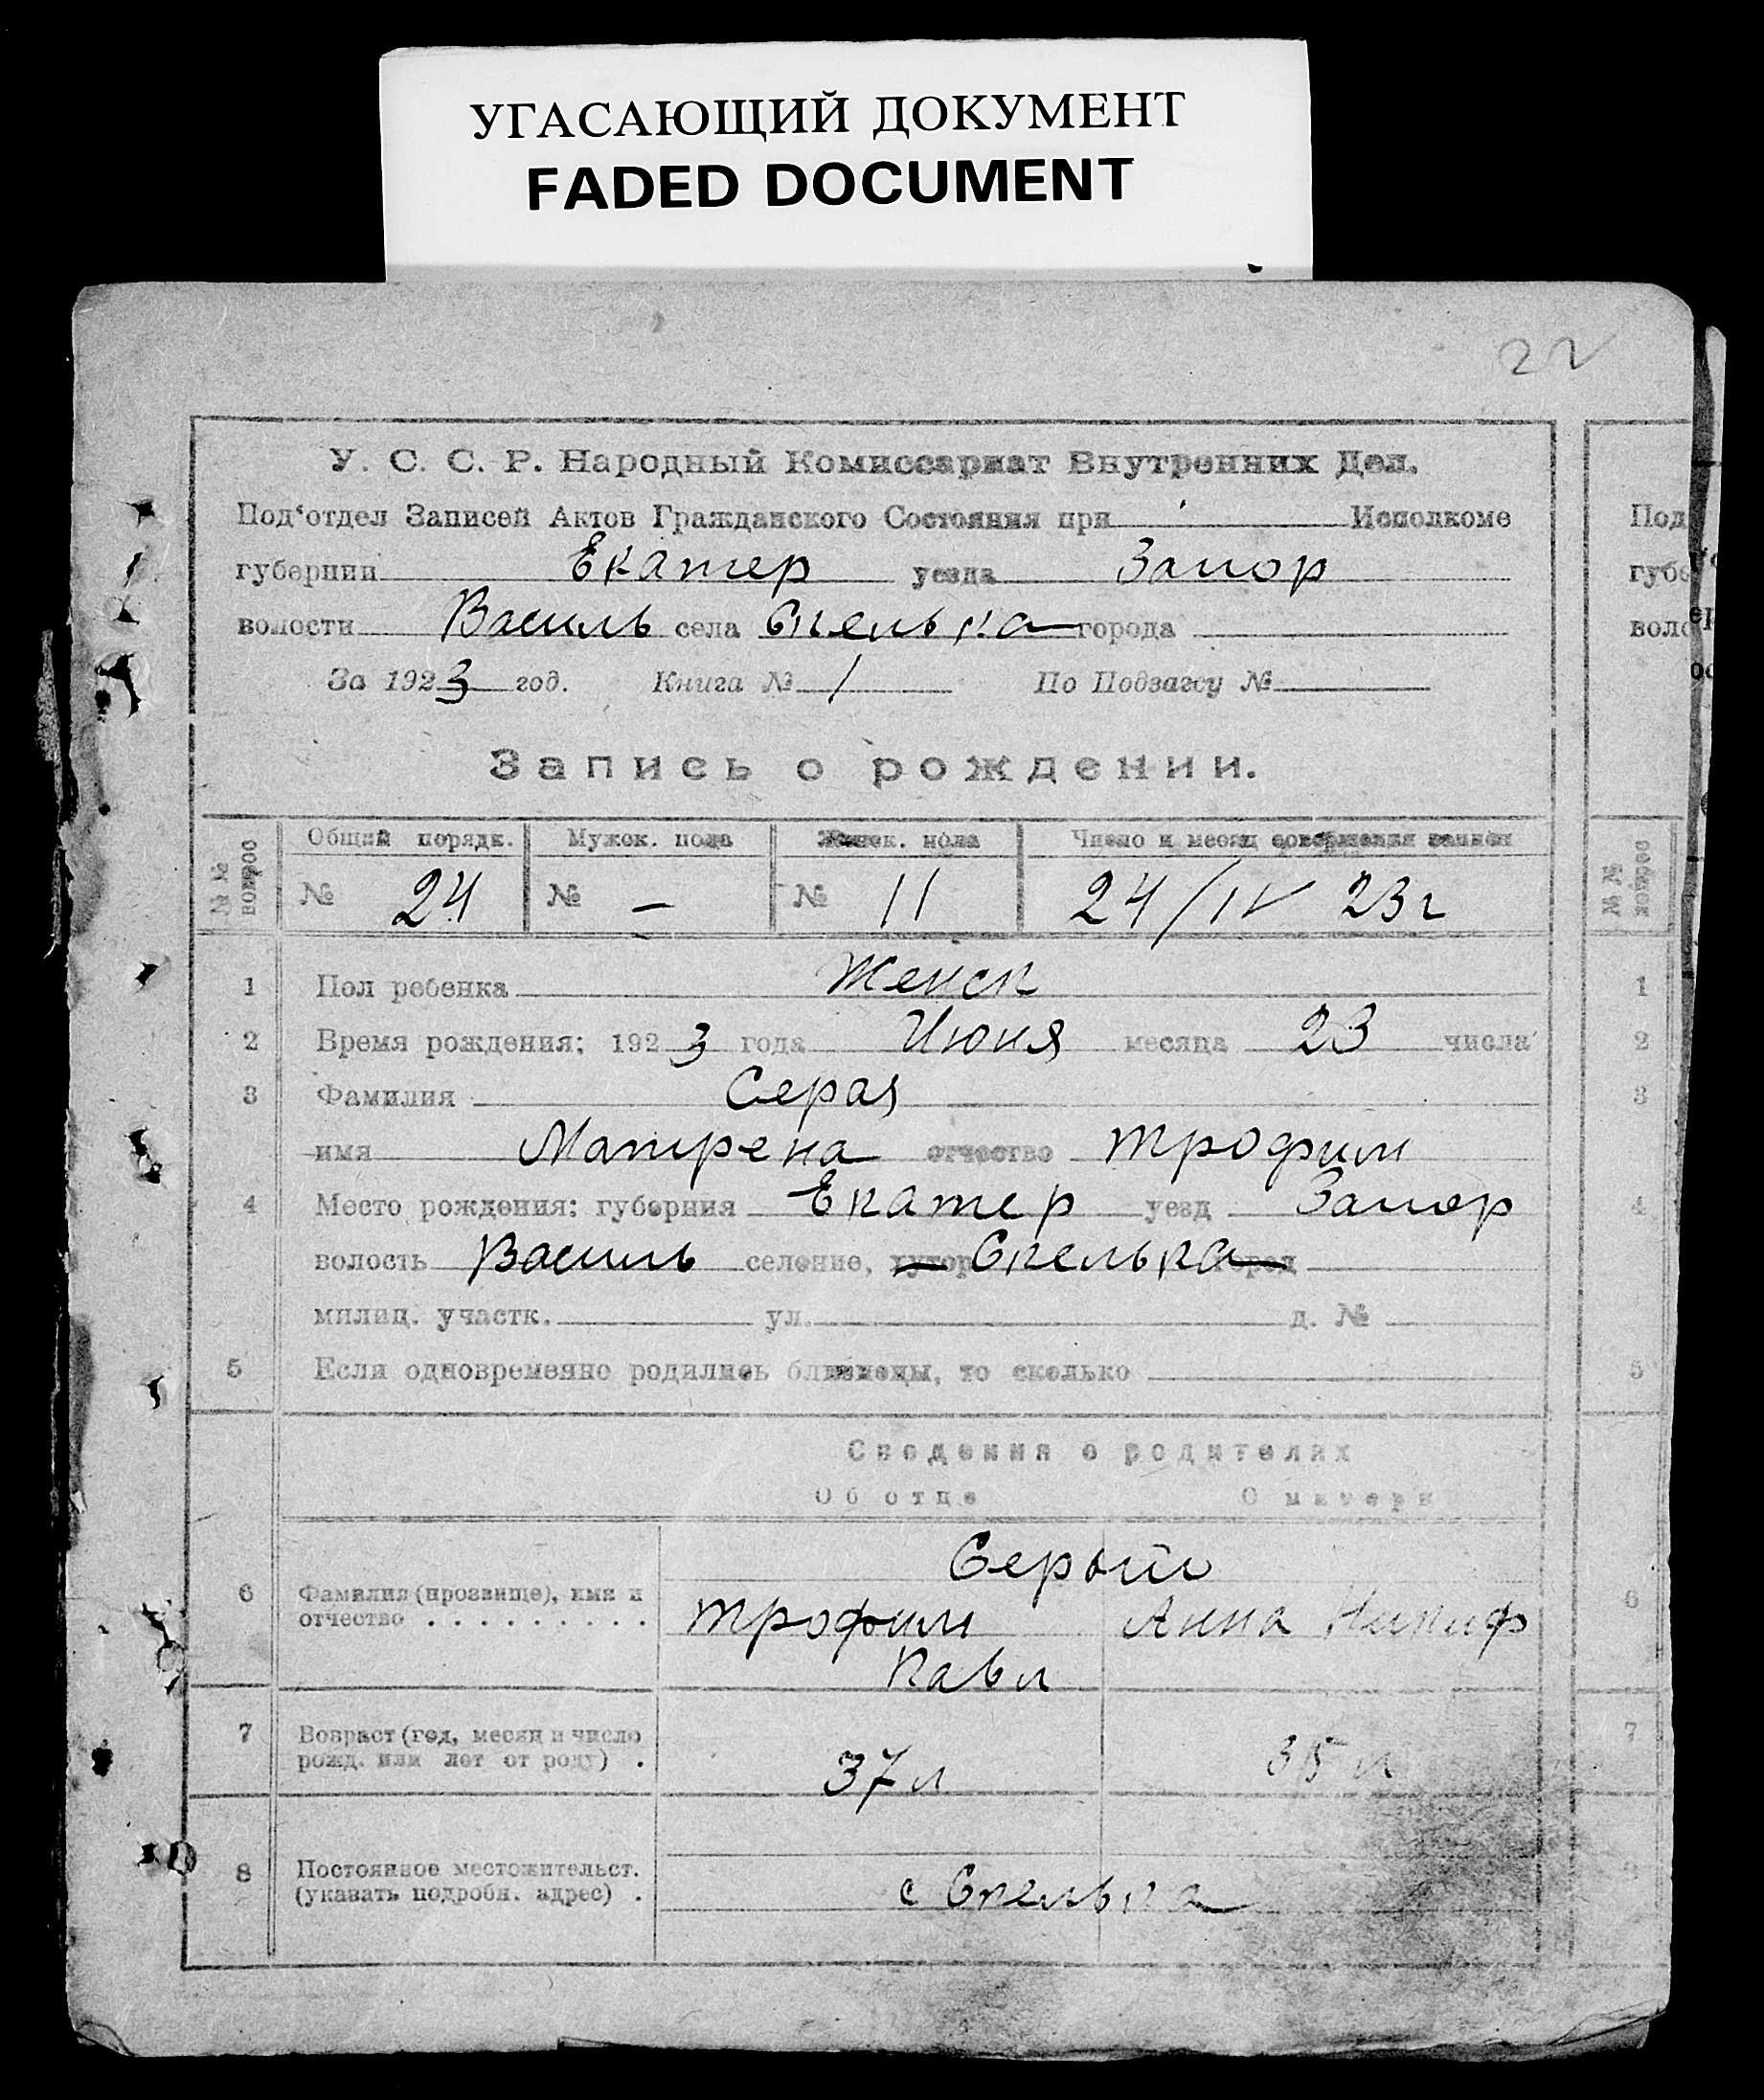 УГАСАЮЩИЙ ДОКУМЕНТ
FADED DOCUMENT
22
У. С. С. Р. Народный Комиссариат Внутренних Дел.
Под‘отдел Записей Актов Гражданского Состояния при Исполкоме
губернии Екатер уезда Запор
волости Василь села Скелька города
За 1923 год. Книга № 1 По Подзагсу №
Запись о рождении.
№ № вопрос Общий порядк. Мужск. пола Женск. пола Число и месяц совершения записи
№ 24 № — № 11 24/IV 23 г
1 Пол ребенка Женск
2 Время рождения: 1923 года Июня месяца 23 числа
3 Фамилия Серая
имя Матрена отчество Трофим
4 Место рождения: губерния Екатер уезд Запор
волость Василь селение, хутор Скелька город
милиц. участк. ул. д. №
5 Если одновременно родились близнецы, то сколько
Сведения о родителях
Об отце О матери
Серый
6 Фамилия (прозвище), имя и
отчество . . . . . . . . . Трофим Анна Никиф
Павл
7 Возраст (год, месяц и число
рожд. или лет от роду) . 37 л 35 л
8 Постоянное местожительст.
(указать подробн. адрес) . с Скелька
Под
губе
воло
№ № вопрос
1
2
3
4
5
6
7